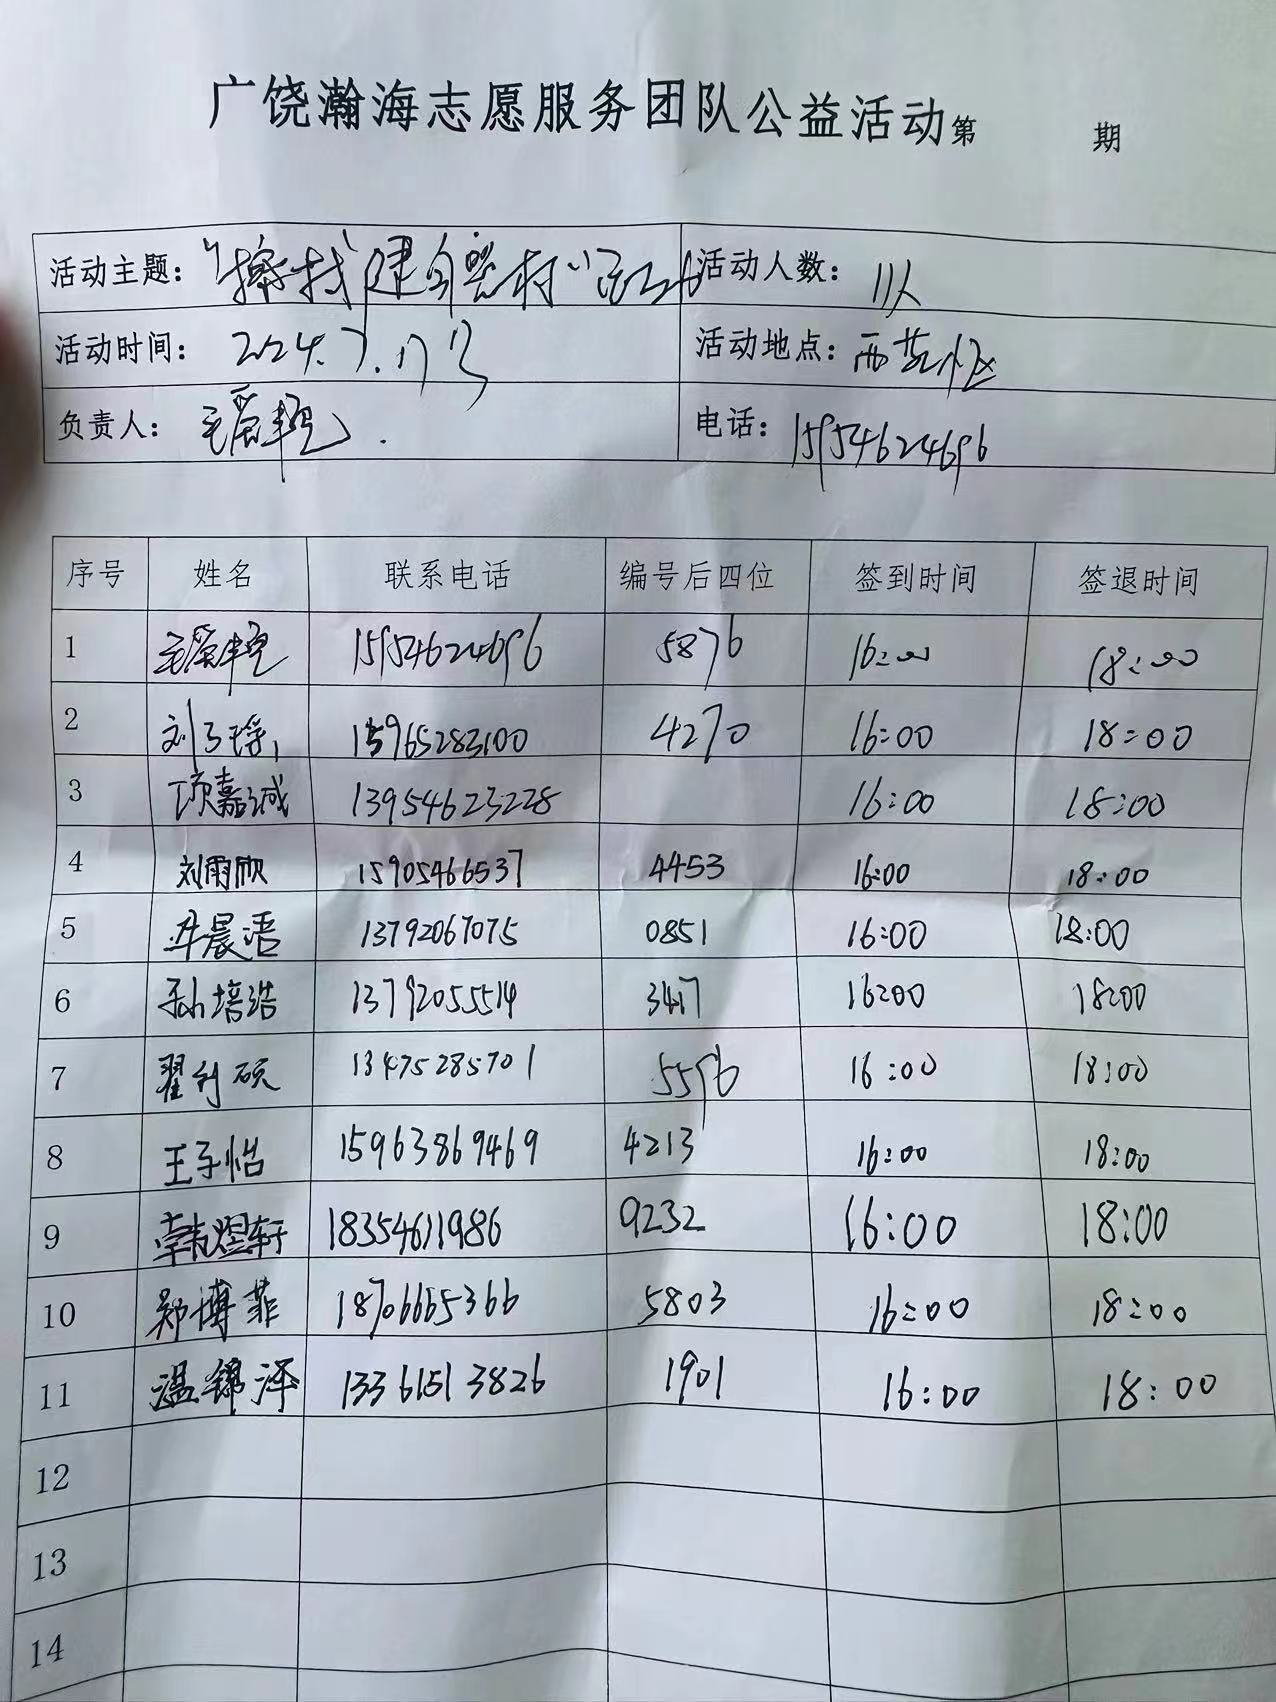 广饶瀚海志愿服务团队公益活动第 期
活动主题： 活动人数： 11人
活动时间： 2024.7.17 活动地点： 西苑小区
负责人： 电话： 15954624696
序号 姓名 联系电话 编号后四位 签到时间 签退时间
1 15954624696 5876 16:00 18:00
2 刘子瑶 15965283100 4270 16:00 18:00
3 项嘉诚 13954623228 16:00 18:00
4 刘雨欣 15905466537 4453 16:00 18:00
5 晨语 13792067075 0851 16:00 18:00
6 孙培浩 13792055514 3417 16:00 18:00
7 翟利硕 13475285701 5596 16:00 18:00
8 王子怡 15963869469 4213 16:00 18:00
9 韩煜轩 18354611986 9232 16:00 18:00
10 郑博菲 18706665366 5803 16:00 18:00
11 温锦泽 13361513826 1901 16:00 18:00
12
13
14